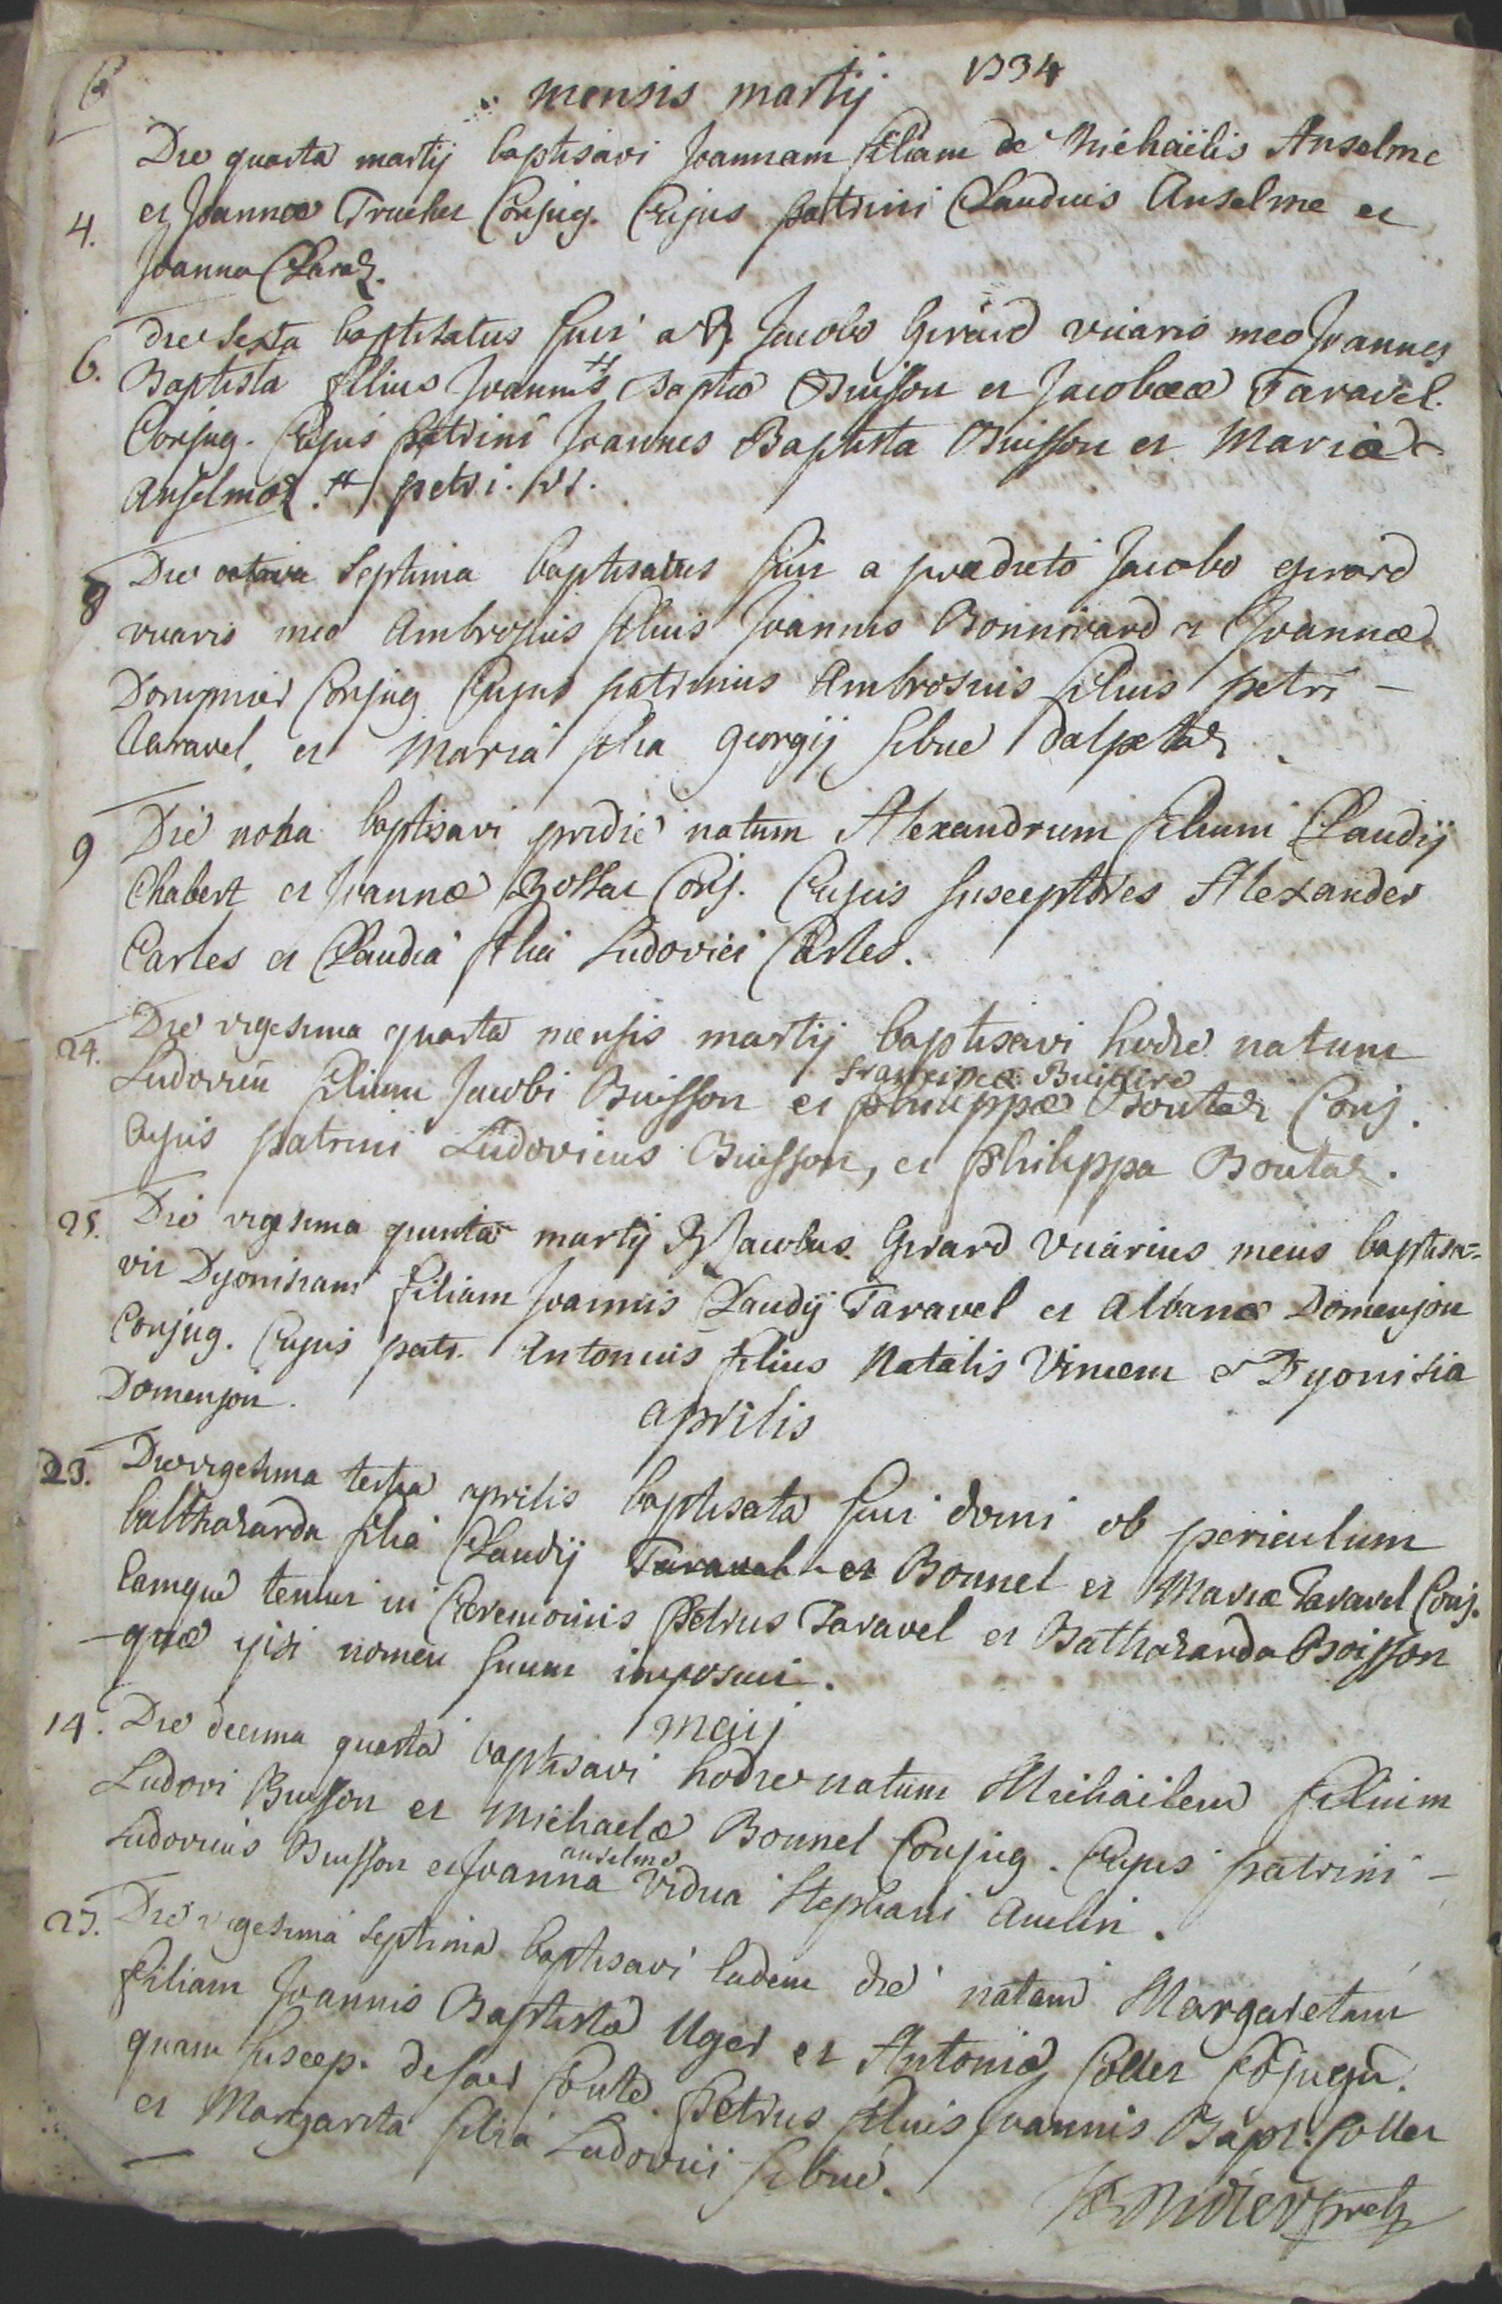 6
mensis martij 1734
Die quarta martij baptisavi Joannam filiam de Michaëlis Anselme
4. et Joannæ Truchet Conjug. Cujus patrini Claudius Anselme et
Joanna Claraz.
6. die sexta baptisatus fuit a R. Jacobo Girard vicario meo Joannes
Baptista filius Joannis # Baptæ Buisson et Jacobææ Taravel.
Conjug. Cujus patrini Joannes Baptista Buisson et Maria
Anselmoz. # petri.
8 Die octava Septima baptisatus fuit a prædicto Jacobo girard
vicario meo Ambrosius filius Joannis Bonnivard et Joannæ
Conjug Cujus patrinus Ambrosius filius petri -
taravel, et Maria filia georgij sibue dalpetaz
9 Die nona baptisavi pridie natum Alexandrum filium Claudij
Chabert et Joannæ Conj. Cujus susceptores Alexander
Carles et Claudia filia Ludovici Carles.
24. Die vigesima quarta mensis martij baptisavi hodie natum
Francisca
Ludovicu filium Jacobi Buisson et philippæ Boutaz Conj.
Cujus patrini Ludovicus Buisson, et Philippa Boutaz.
25. Die vigesima quinta martij R Jacobus Girard Vicarius meus baptisa=
vit Dyonisiam filiam Joannis Claudij Taravel et Albanæ Domenjon
Conjug. Cujus patr. Antonius filius Natalis Vincent et Dyonisia
Domenjon.
aprilis
23. Die vigesima tertia aprilis baptisata fuit domi ob periculum
balthazarda filia Claudij Taravel et Bonnel et Mariæ Taravel Conj.
Eamque tenuit in Ceremoniis Petrus Taravel et Balthazarda Boisson
quæ ipsi nomen suum imposuit.
maij
14. Die decima quarta baptisavi hodie natum Michaëlem filium
Ludovi Buisson et Michaelæ Bonnel Conjug. Cujus patrini -
anselme
Ludovicus Buisson et Joanna Vidua Stephani
27. Die vigesima septima baptisavi Eadem die natam Margaretam
filiam Joannis Baptistæ Uget et Antoniæ Collet Cojugu.
quam suscep. de sacr fonte Petrus filius Joannis Bapt. Collet
et Margarita filia Ludovici sibué.